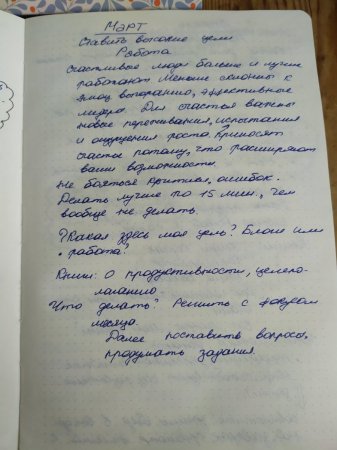 Март
Ставить высокие цели
Работа
Счастливые люди больше и лучше
работают. Меньше склонны к
эмоц. выгоранию, эффективные
лидеры. Для счастья важны
новые переживания, испытания
и ощущения роста. Приносят
счастье потому, что расширяют
ваши возможности.
Не бояться критики, ошибок.
Делать лучше по 15 мин., чем
вообще не делать.
? Какая здесь моя цель? Блоги или
работа?
Книги: О продуктивности, целепо-
лагании.
Что делать? Решить с фокусом
месяца.
Далее поставить вопросы,
продумать задания.